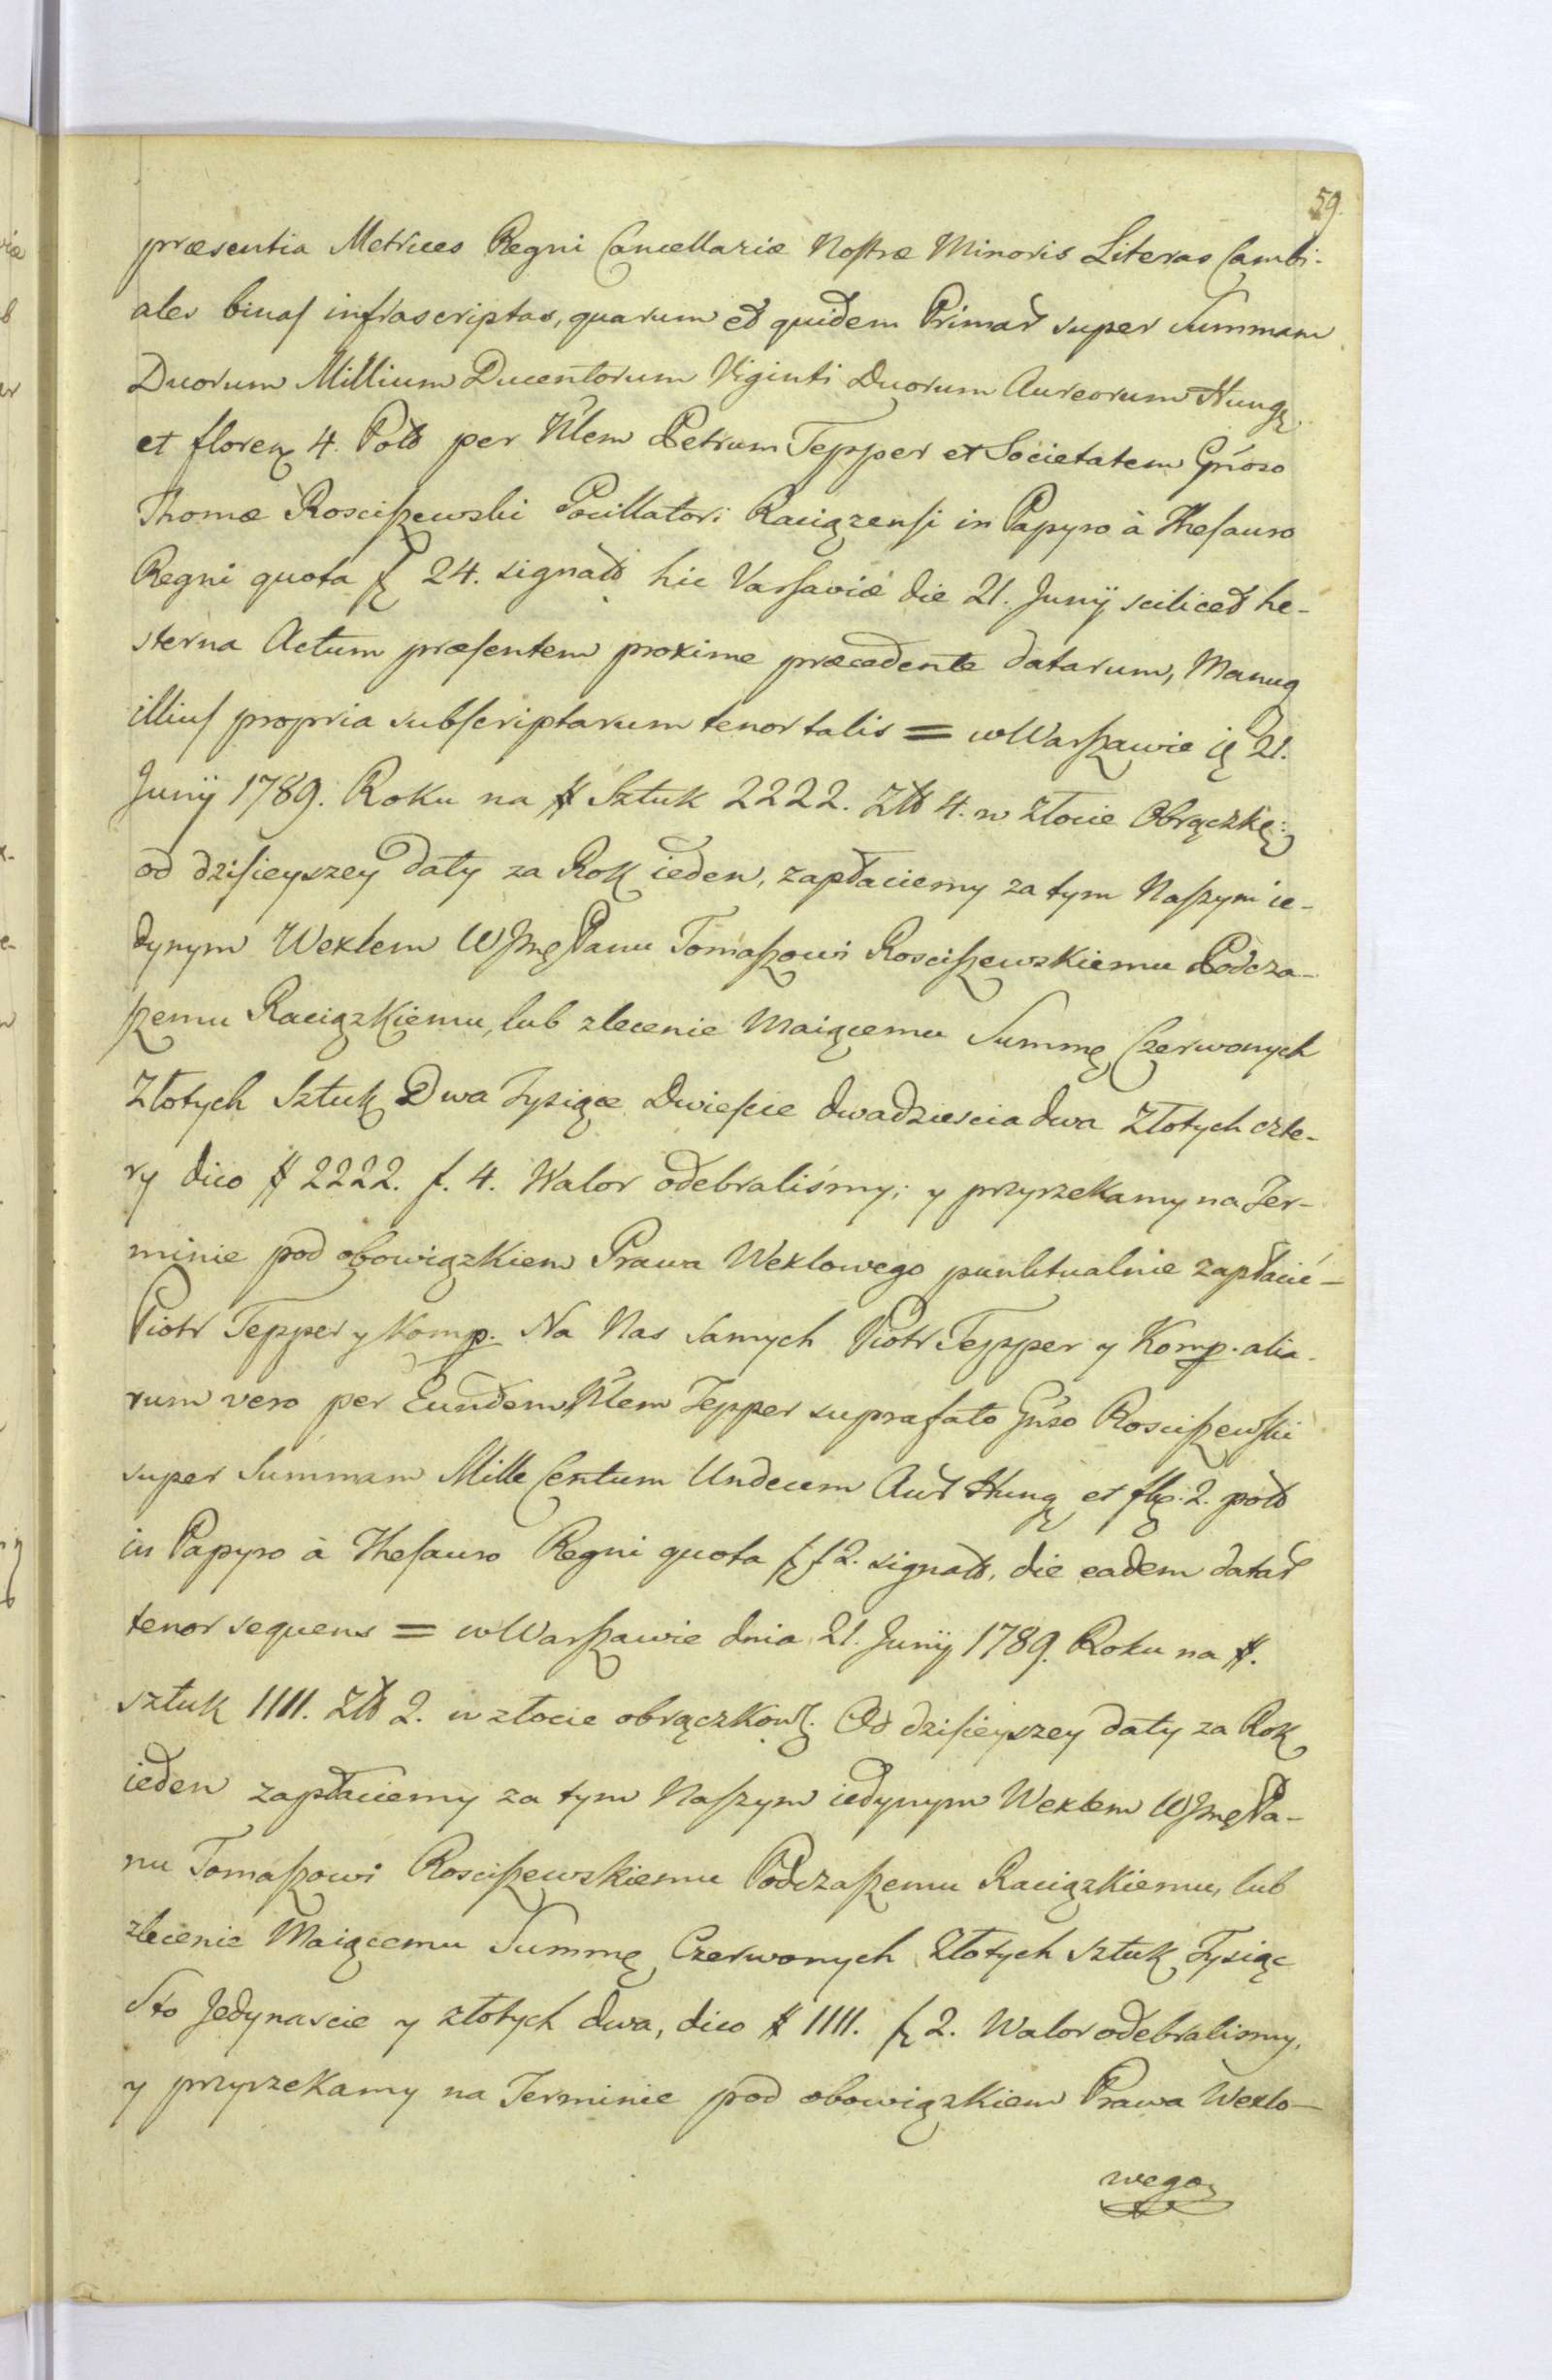 59.
præsentia Metrices Regni Cancellariæ Nostræ Minoris Literas Cambi-
ales binas infrascriptas, quarum et quidem Primar super Summam
Duorum Millium Ducentorum Viginti Duorum Aureorum Hung
et floren 4. Pol per Nlem Petrum Tepper et Societatem Gnoso
Thomæ Rosciszewski Pocillatori Raciązensi in Papyro à Thesauro
Regni quota f 24. signat hic Varsaviæ die 21. Junij scilicet he-
sterna Actum præsentem proxime præcedente datarum, Manuq
illius propria subscriptarum tenor talis = w Warszawie 21.
Junij 1789. Roku na # Sztuk 2222. Zł 4. w złocie Obrączk:
od dzisieyszey daty za Rok ieden, zapłaciemy za tym Naszym ie-
dynym Wexlem WJmę Panu Tomaszowi Rosciszewskiemu Podcza-
szemu Raciązkiemu, lub zlecenie Maiącemu Summę Czerwonych
Złotych Sztuk Dwa Tysiące Dwieście dwadziescia dwa Złotych czte-
ry dico # 2222. f. 4. Walor odebraliśmy; y przyrzekamy na Ter-
minie pod obowiązkiem Prawa Wexlowego punktualnie zapłacić –
Piotr Tepper y Komp. Na Nas samych Piotr Tepper y Komp. alia-
rum vero per Eundem Nlem Tepper suprafato Gnso Rosciszewski
super Summam Mille Centum Undecem Aur Hung et fl. 2. pol
in Papyro à Thesauro Regni quota f 12. signat, die eadem datar
tenor sequens = w Warszawie dnia 21. Junij 1789. Roku na #.
sztuk 1111. Zł 2. w złocie obrączkow. Od dzisieyszey daty za Rok
ieden zapłaciemy za tym Naszym iedynym Wexlem WJmę Pa-
nu Tomaszowi Rosciszewskiemu Podczaszemu Raciązkiemu, lub
zlecenie Maiącemu Summę Czerwonych Złotych sztuk Tysiąc
Sto Jedynascie y złotych dwa, dico # 1111. f 2. Walor odebralismy,
y przyrzekamy na Terminie pod obowiązkiem Prawa Wexlo-
wego